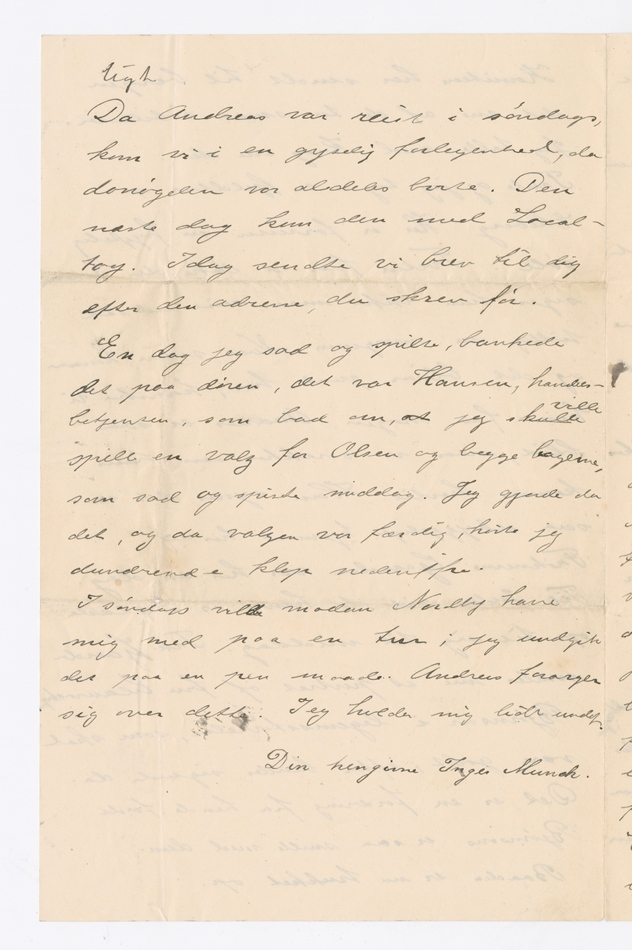 tigt.
Da Andreas var reist i søndags,
kom vi i en gyselig forlegenhed, da
donøgelen var aldeles borte. Den
næste dag kom den med Local-
tog. Idag sendte vi brev til dig
efter den adresse, du skrev før.
En dag jeg sad og spilte, bankede
det paa døren, det var Hansen, handels-
betjenten, som bad om, at jeg skulde ville
spille en vals for Olsen og begge bagerne,
som sad og spiste middag. Jeg gjorde da
det, og da valsen var færdig, hørte jeg
dundrende klap nedenifra.
I søndags vilde madam Nordby have
mig med paa en tur; jeg undgik
det paa en pen maade. Andreas forarger
sig over dette. Jeg holder mig lidt undaf.
Din hengivne Inger Munch.